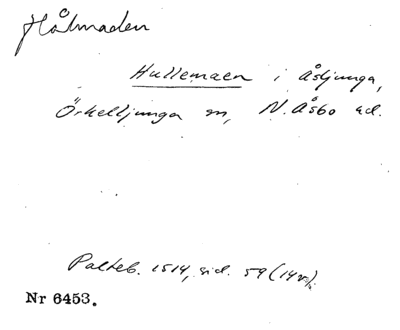 Hålmaden
Hullemaen i Åsljunga,
Örkelljunga sn, N. Åsbo hd.
Palteb. 1514, sid. 59 (14 v).
Nr 6453.